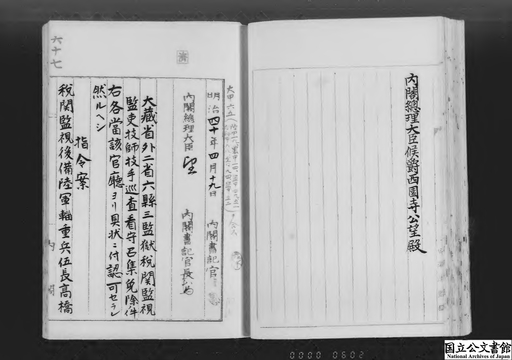 内閣總理大臣侯爵西園寺公望殿
明治四十年四月十九日
内閣書記官
内閣總理大臣
内閣書記官長
大藏省外二省六縣三監獄税関監視
監吏技師技手巡査看守召集免除件
右各當該官廳ヨリ具状ニ付認可セラレ
然ルヘシ
指令案
税関監視後備陸軍輜重兵伍長高橋
六十七
内閣
0000 0602
国立公文書館
National Archives of Japan